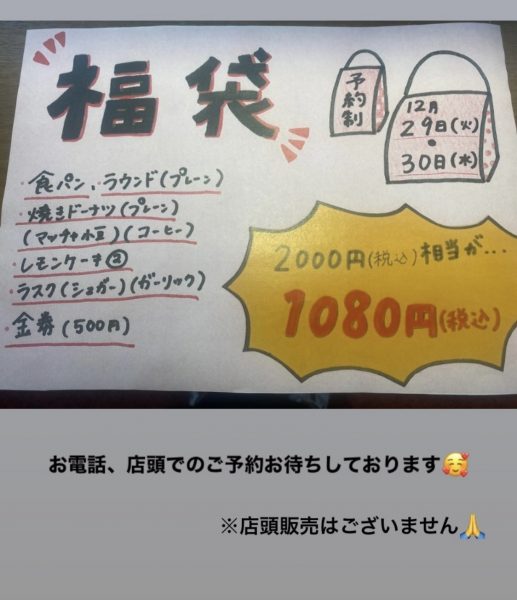 福袋
予約制
12月
29日(火)
・
30日(水)
・食パン、ラウンド(プレーン)
・焼きドーナツ(プレーン)
(マッチャ小豆)(コーヒー)
・レモンケーキ②
・ラスク(シュガー)(ガーリック)
・金券(500円)
2000円(税込)相当が...
1080円(税込)
お電話、店頭でのご予約お待ちしております🥰
※店頭販売はございません🙏